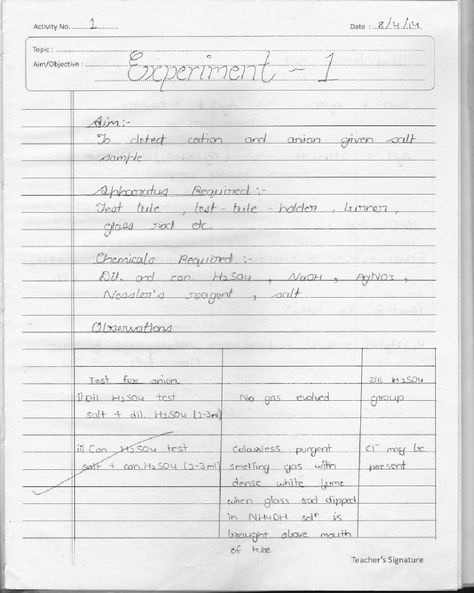 Activity No. 1 Date : 8/4/14
Topic :
Aim/Objective : Experiment - 1
Aim:-
To detect cation and anion given salt
sample
Apparatus Required :-
Test tube, test-tube-holder, burner,
glass rod etc.
Chemicals Required :-
Dil. and con. H2SO4, NaOH, AgNO3,
Nessler's reagent, salt
Observations
Test for anion.
i) Dil H2SO4 test No gas evolved Dil H2SO4
salt + dil. H2SO4 (2-3ml) group
ii) Con. H2SO4 test Colourless pungent Cl- may be
salt + con. H2SO4 (2-3ml) smelling gas with present
dense white fume
when glass rod dipped
in NH4OH soln is
brought above mouth
of tube.
Teacher's Signature